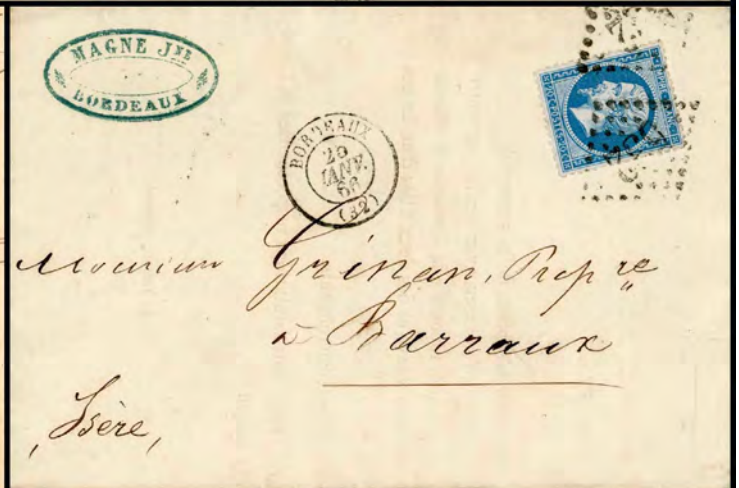 MAGNE JNE
BORDEAUX
BORDEAUX
20
JANV.
66
(32)
Monsieur Grinan, Propre
à Barraux
Isère,